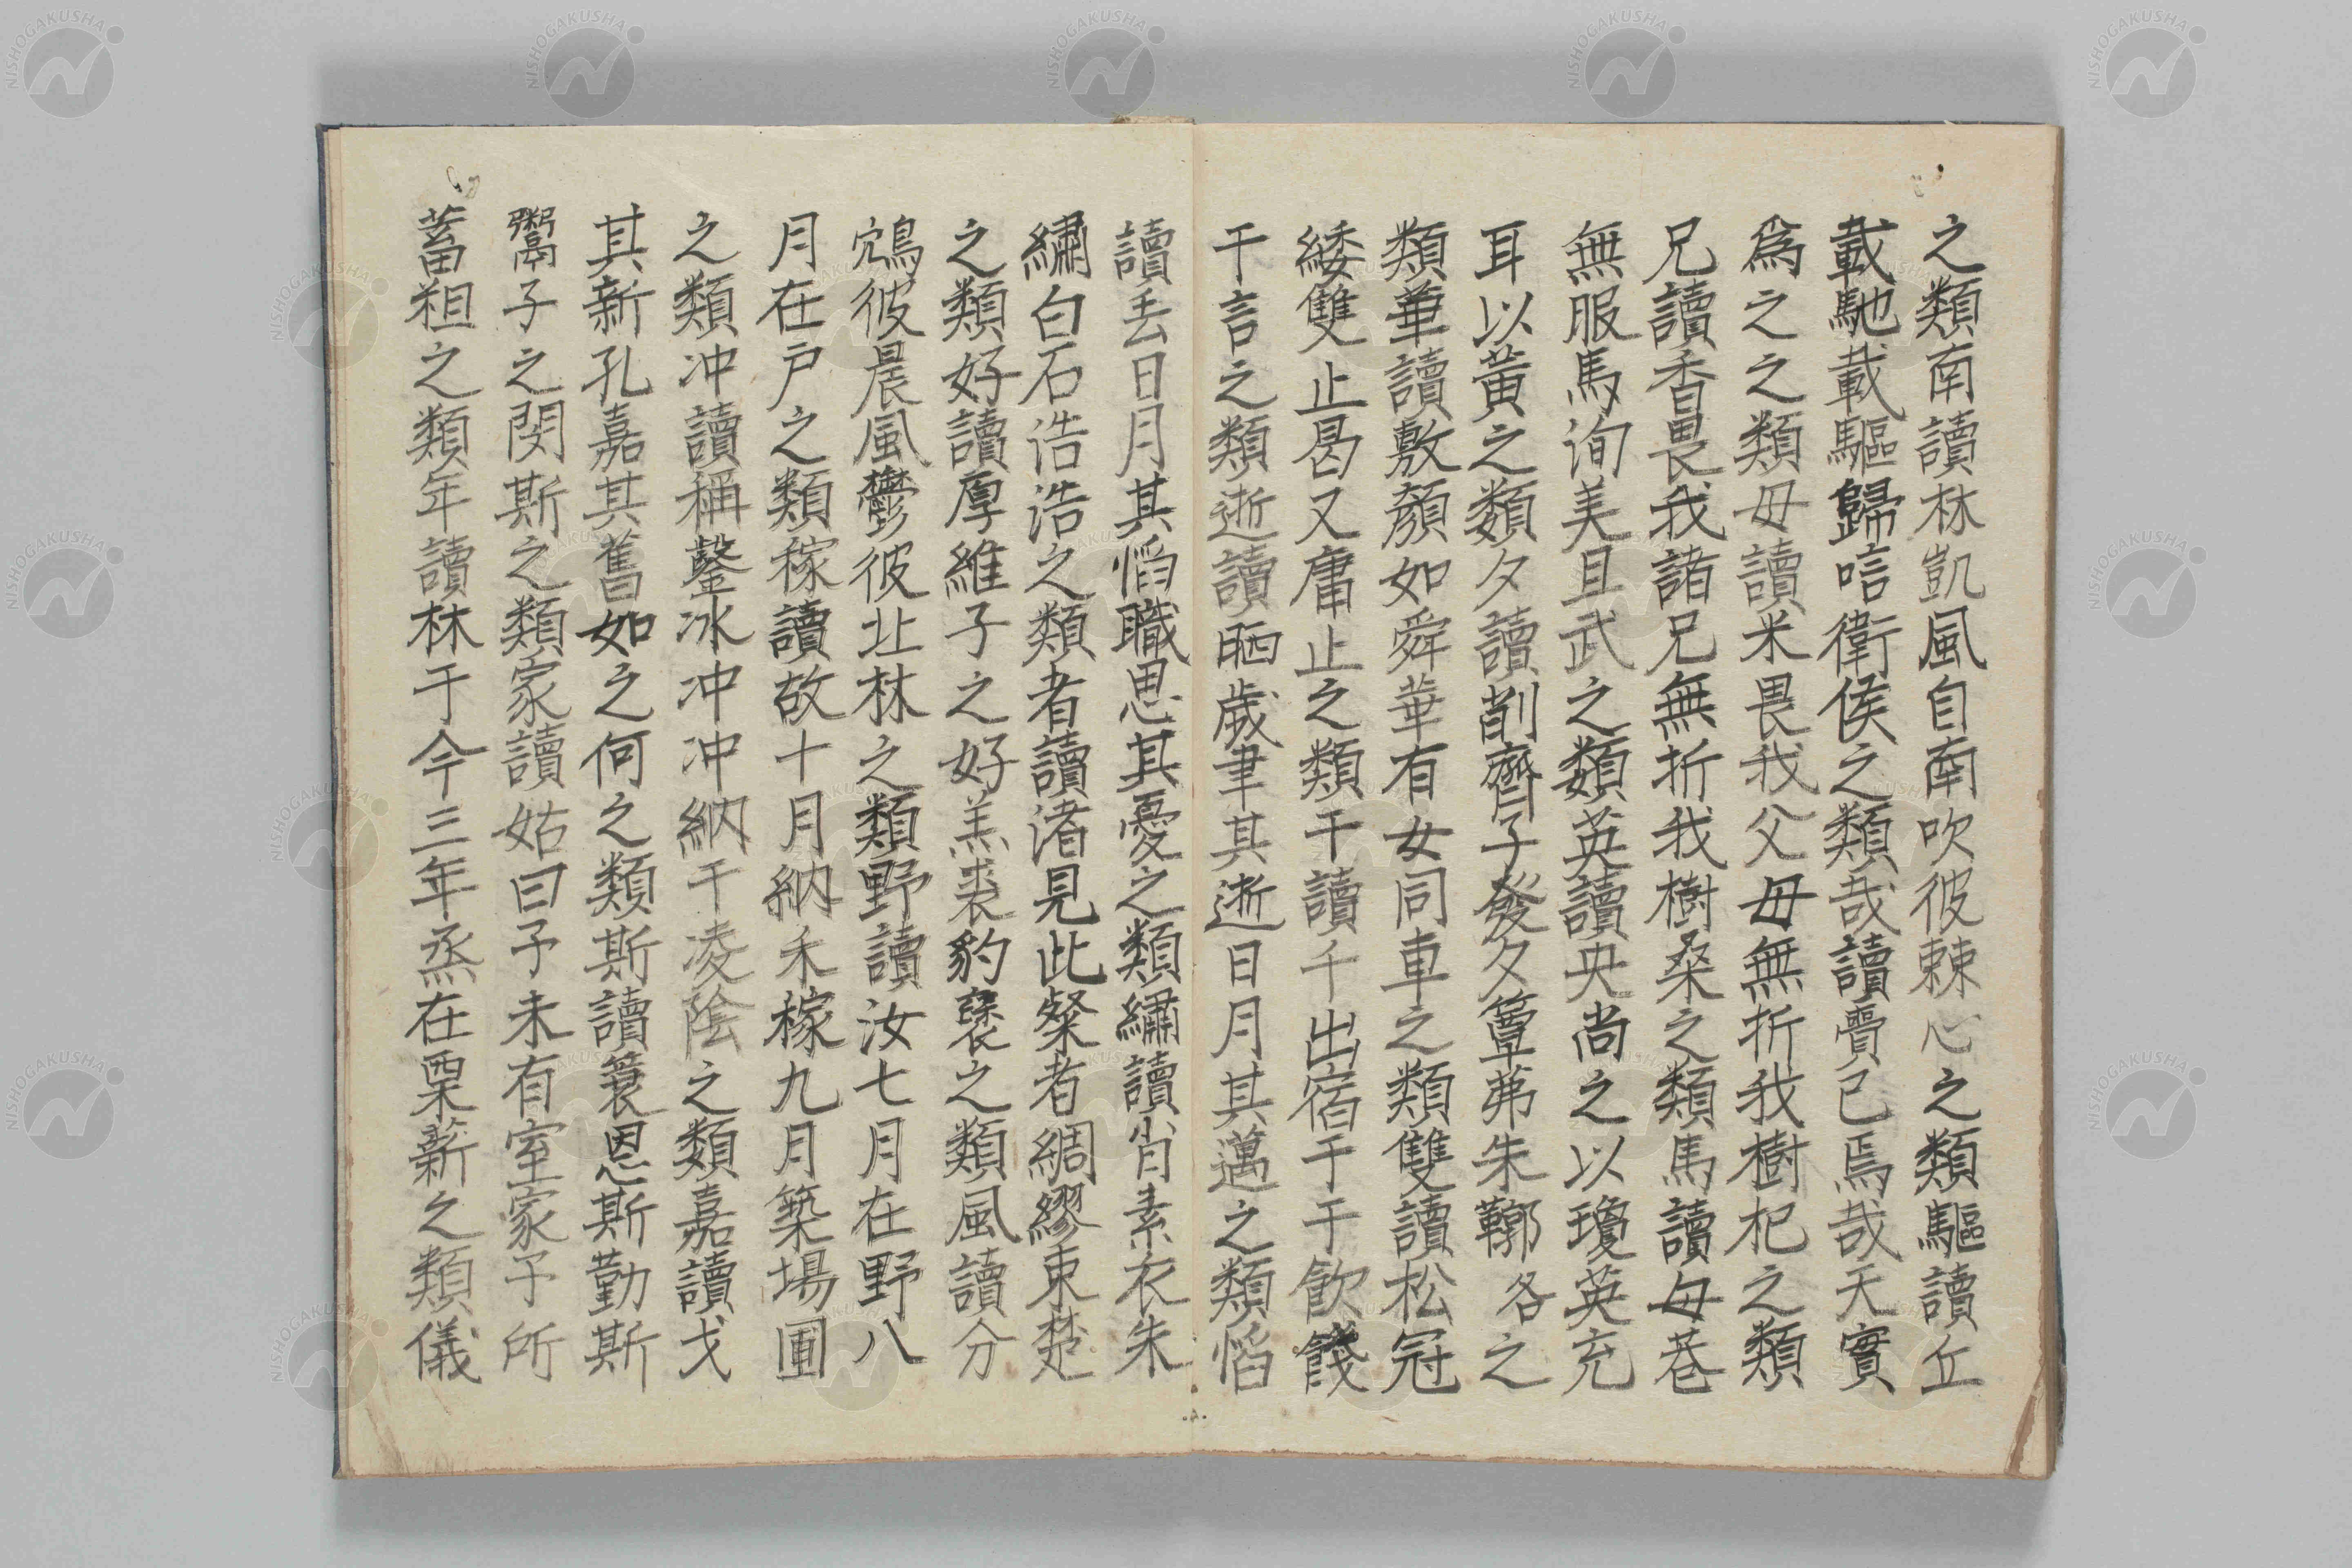 之類南讀林凱風自南吹彼棘心之類驅讀丘
載馳載驅歸唁衛侯之類哉讀賷已焉哉天實
爲之之類母讀米畏我父母無折我樹杞之類
兄讀香畏我諸兄無折我樹桑之類馬讀母巷
無服馬洵美且武之類英讀央尚之以瓊英充
耳以黃之類夕讀削齊子發夕簟茀朱鞹各之
類華讀敷顏如舜華有女同車之類雙讀松冠
緌雙止曷又庸止之類干讀千出宿于干飲餞
干言之類逝讀晒歲聿其逝日月其邁之類慆
讀丟日月其慆職思其憂之類繡讀肖素衣朱
繡白石浩浩之類者讀渚見此粲者綢繆束楚
之類好讀厚維子之好羔裘豹褎之類風讀分
鴥彼晨風鬱彼北林之類野讀汝七月在野八
月在户之類稼讀故十月納禾稼九月築場圃
之類冲讀稱鑿冰冲冲納干凌陰之類嘉讀戈
其新孔嘉其舊如之何之類斯讀簑恩斯勤斯
鬻子之閔斯之類家讀姑曰予未有室家予所
蓄租之類年讀林于今三年烝在栗薪之類儀
NISHOGAKUSHA